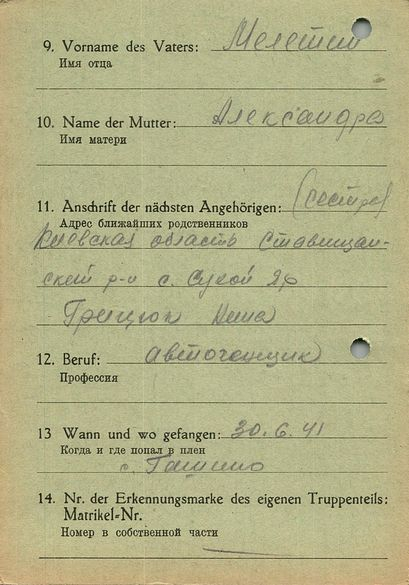 9. Vorname des Vaters: Мелетий
Имя отца
10. Name der Mutter: Александра
Имя матери
11. Anschrift der nächsten Angehörigen: (сестра)
Адрес ближайших родственников
Киевская область Ставищан-
ский р-н с. Сухой Яр
Грицюк Нина
12. Beruf: автогенщик
Профессия
13 Wann und wo gefangen: 30.6.41
Когда и где попал в плен
с.
14. Nr. der Erkennungsmarke des eigenen Truppenteils:
Matrikel-Nr.
Номер в собственной части